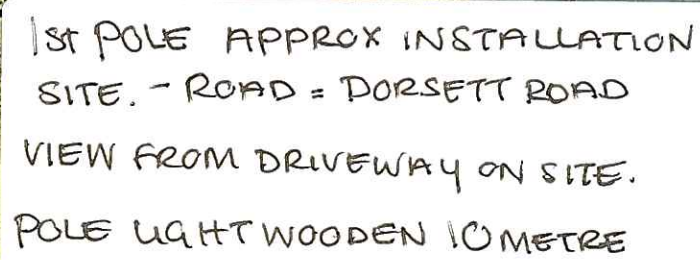 1st POLE APPROX INSTALLATION
SITE. - ROAD = DORSETT ROAD
VIEW FROM DRIVEWAY ON SITE.
POLE LIGHT WOODEN 10 METRE